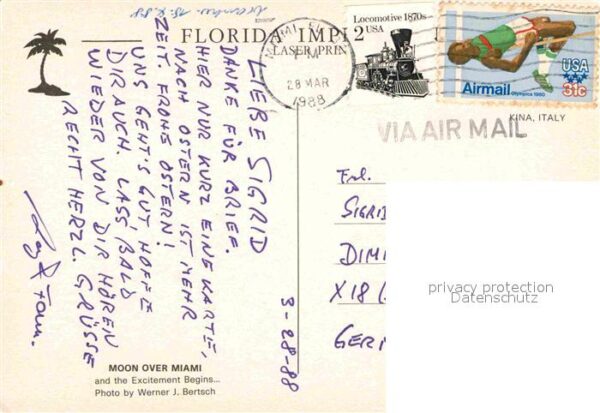 FLORIDA IMP
LASER PRIN
MIAMI
PM
28 MAR
1988
Locomotive 1870s
2
USA
Airmail
Olympics 1980
USA
31c
KINA, ITALY
VIA AIR MAIL
LIEBE SIGRID
DANKE FÜR BRIEF.
HIER NUR KURZ EINE KARTE,
NACH OSTERN IST MEHR
ZEIT. FROHE OSTERN!
UNS GEHT'S GUT HOFFE
DIR AUCH. LASS BALD
WIEDER VON DIR HÖREN
RECHT HERZL. GRÜSSE
Fam.
3-28-88
Frl.
SIGRID
DIMI
X18
GERM
privacy protection
Datenschutz
MOON OVER MIAMI
and the Excitement Begins...
Photo by Werner J. Bertsch